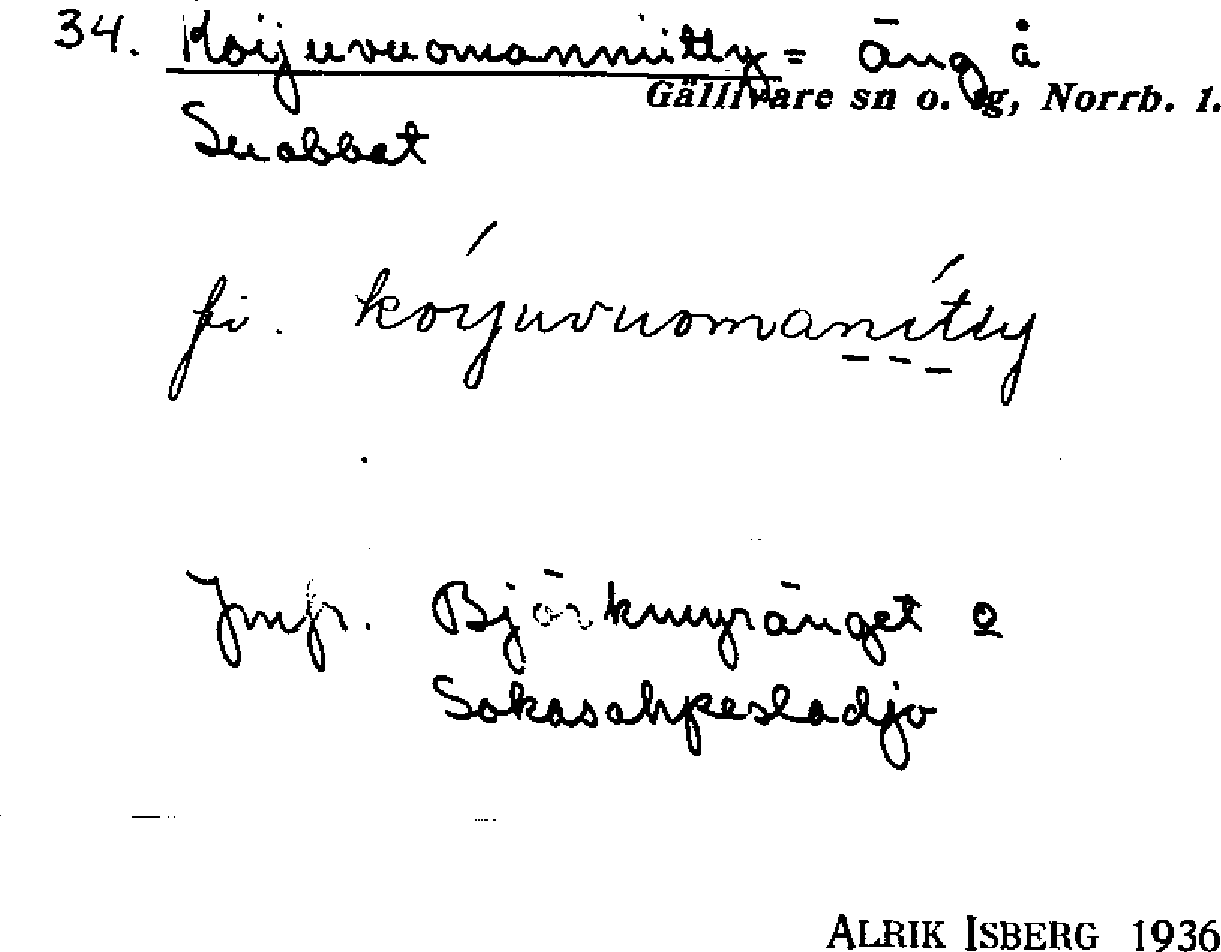 34. Koijuvuomanniitty = äng å
Gällivare sn o. tg, Norrb. l.
Snabbat
fi. kói̯juvuomanítty
Jmfr. Björkmyränget o
Sakasahpesladjo
ALRIK ISBERG 1936